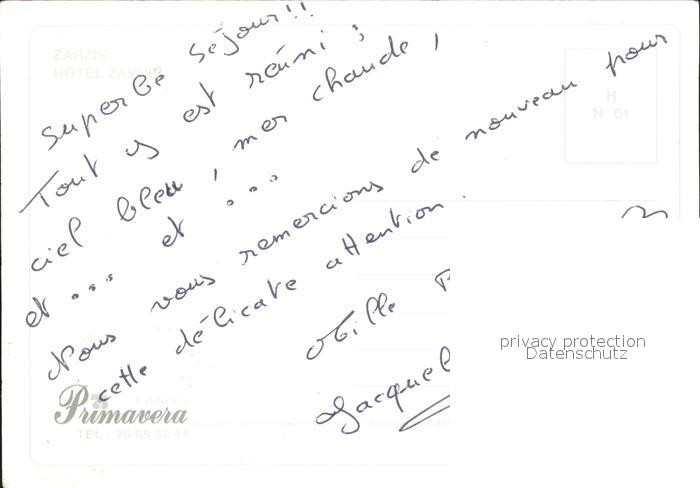 Superbe séjour!!
Tout y est réuni :
ciel bleu, mer chaude,
et ... et ...
Nous vous remercions de nouveau pour
cette délicate attention.
Mille
Jacquel
ZARZIS
HOTEL ZAPHIR
H
N° 01
Editions
Primavera
TEL : 75 65 32 44
privacy protection
Datenschutz